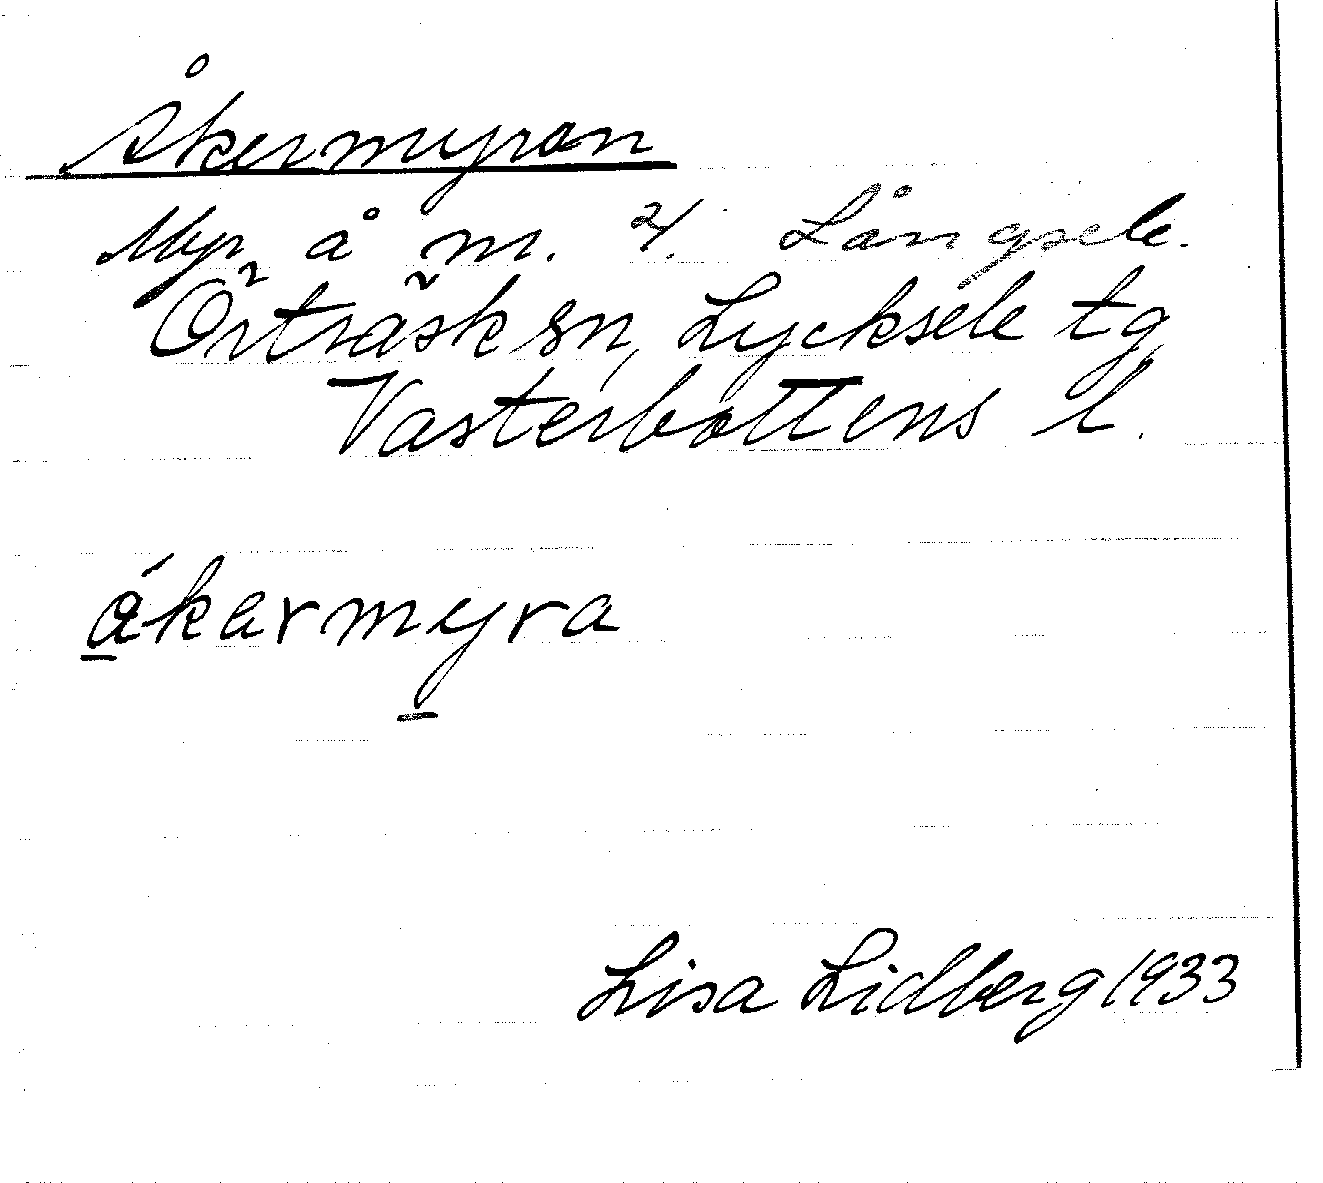 Åkermyran
Myr å m. 4. Långsele.
Örträsk sn, Lycksele tg
Västerbottens l.
åkarmyra
Lisa Lidberg 1933